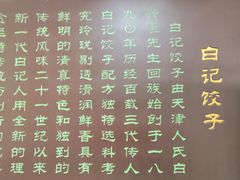 白记饺子
白记饺子由天津人氏白
先生回族始创于一八
九〇年历经百载三代传人
白记饺子配方独特选料考
究玲珑剔透滑润鲜香具有
鲜明的清真特色和独到的
传统风味二十一世纪以来
新一代白记人用全新的理